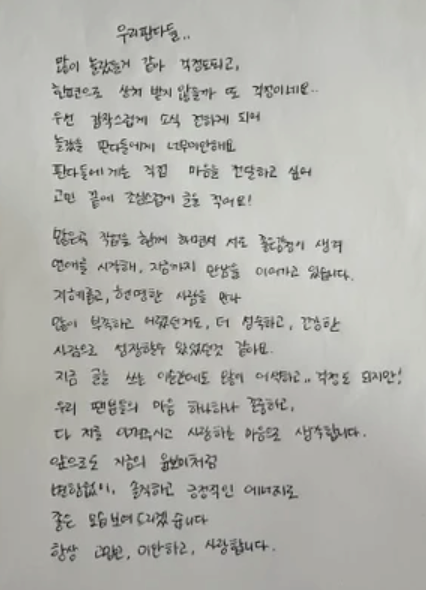 우리판다들..
많이 놀랐을거 같아 걱정도되고,
한편으로 상처 받지 않을까 또 걱정이네요..
우선 갑작스럽게 소식 전하게 되어
놀랐을 판다들에게 너무미안해요
판다들에게는 직접 마음을 전달하고 싶어
고민 끝에 조심스럽게 글을 적어요!
많은곡 작업을 함께 하면서 서로 좋은감정이 생겨
연애를 시작해, 지금까지 만남을 이어가고 있습니다.
지혜롭고, 현명한 사람을 만나
많이 부족하고 어렸던저도, 더 성숙하고, 건강한
사람으로 성장할수 있었던것 같아요.
지금 글을 쓰는 이순간에도 많이 어색하고.. 걱정도 되지만!
우리 팬분들의 마음 하나하나 존중하고,
다 저를 아껴주시고 사랑하는 마음으로 생각합니다.
앞으로도 지금의 윤보미처럼
변함없이, 솔직하고 긍정적인 에너지로
좋은 모습보여드리겠습니다
항상 고맙고, 미안하고, 사랑합니다.